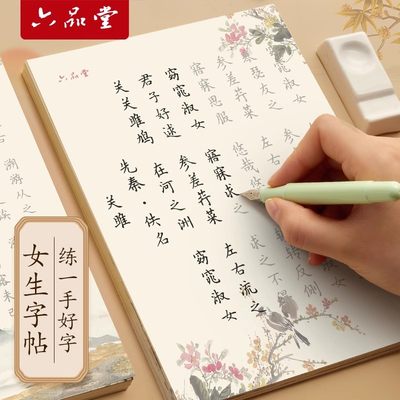 六品堂
六品堂
关雎
先秦·佚名
关关雎鸠
在河之洲
窈窕淑女
君子好逑
参差荇菜
左右流之
窈窕淑女
寤寐求之
求之不得
寤寐思服
悠哉悠哉
辗转反侧
参差荇菜
左右
窈窕淑女
琴瑟友之
溯游从之
练一手好字
女生字帖